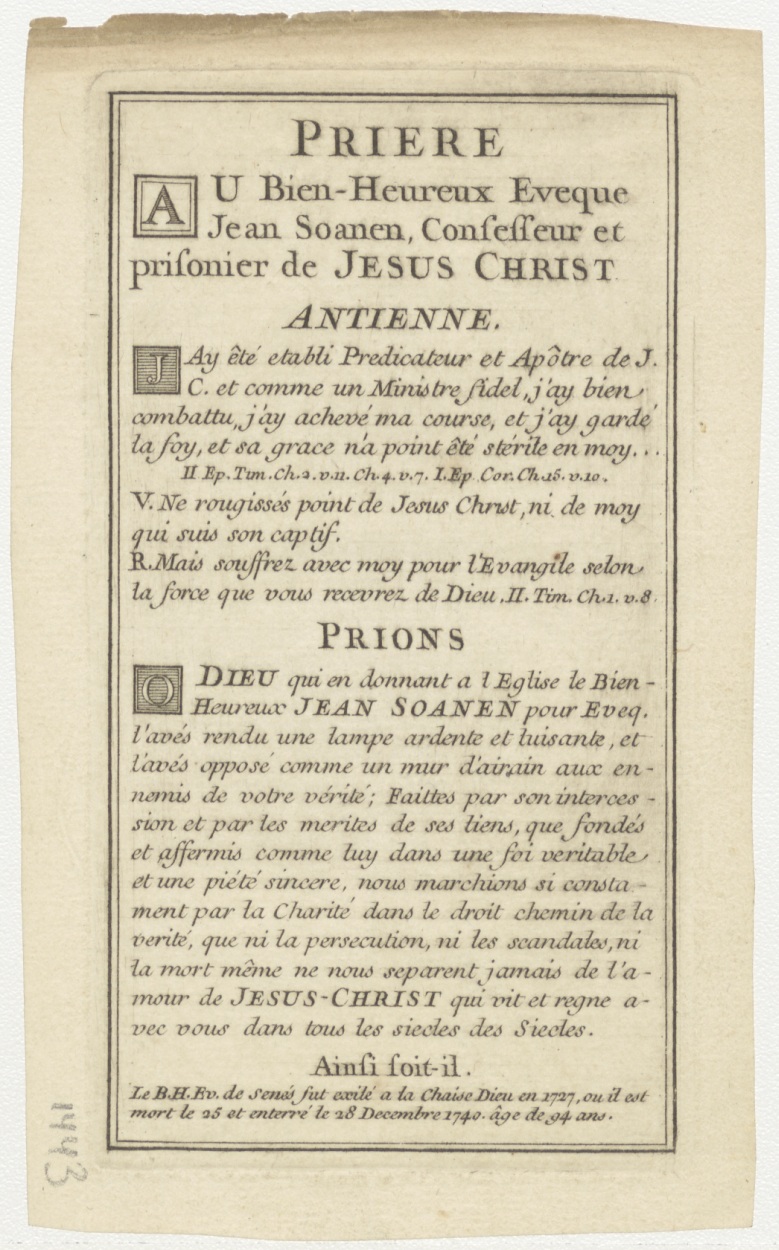 PRIERE
AU Bien-Heureux Eveque
Jean Soanen, Confeſſeur et
priſonier de JESUS CHRIST
ANTIENNE.
JAy êté etabli Predicateur et Apôtre de J.
C. et comme un Ministre fidel, j'ay bien
combattu, j'ay achevé ma course, et j'ay gardé
la foy, et sa grace n'a point êté stérile en moy...
II Ep. Tim. Ch.2. v.11. Ch.4. v.7. I. Ep. Cor. Ch.15. v.10.
V. Ne rougissés point de Jesus Christ, ni de moy
qui suis son captif.
R. Mais souffrez avec moy pour l'Evangile selon
la force que vous recevrez de Dieu. II. Tim. Ch.1. v.8.
PRIONS
O DIEU qui en donnant a l Eglise le Bien-
Heureux JEAN SOANEN pour Eveq.
l'avés rendu une lampe ardente et luisante, et
l'avés opposé comme un mur d'airain aux en-
nemis de votre vérité; Faittes par son interces-
sion et par les merites de ses liens, que fondés
et affermis comme luy dans une foi veritable
et une piété sincere, nous marchions si consta-
ment par la Charité dans le droit chemin de la
verité, que ni la persecution, ni les scandales, ni
la mort même ne nous separent jamais de l'a-
mour de JESUS-CHRIST qui vit et regne a-
vec vous dans tous les siecles des Siecles.
Ainſi ſoit-il.
Le B.H. Ev. de Senés fut exilé a la Chaise Dieu en 1727, ou il est
mort le 25 et enterré le 28 Decembre 1740. âge de 94 ans.
1443